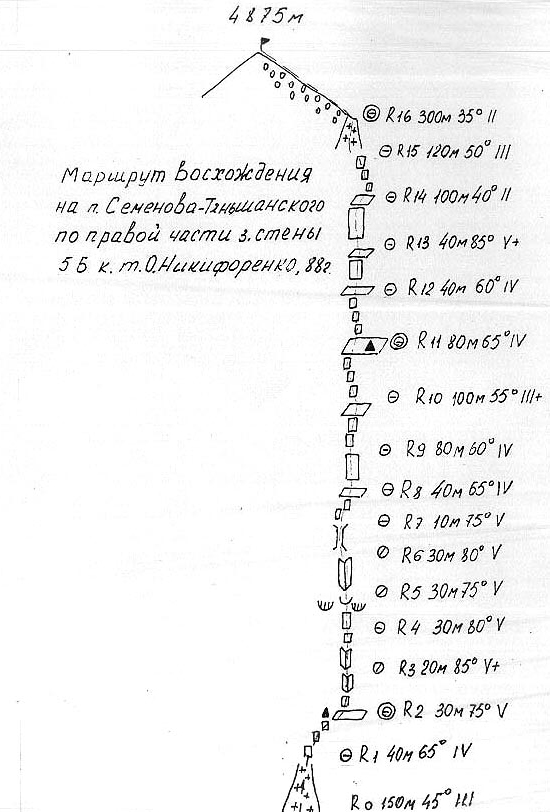 4875м
R16 300м 35° II
R15 120м 50° III
Маршрут восхождения
на п. Семенова-Тяньшанского
по правой части з. стены
5Б к. т. О. Никифоренко, 88г.
R14 100м 40° II
R13 40м 85° V+
R12 40м 60° IV
R11 80м 65° IV
R10 100м 55° III+
R9 80м 60° IV
R8 40м 65° IV
R7 10м 75° V
R6 30м 80° V
R5 30м 75° V
R4 30м 80° V
R3 20м 85° V+
R2 30м 75° V
R1 40м 65° IV
R0 150м 45° III